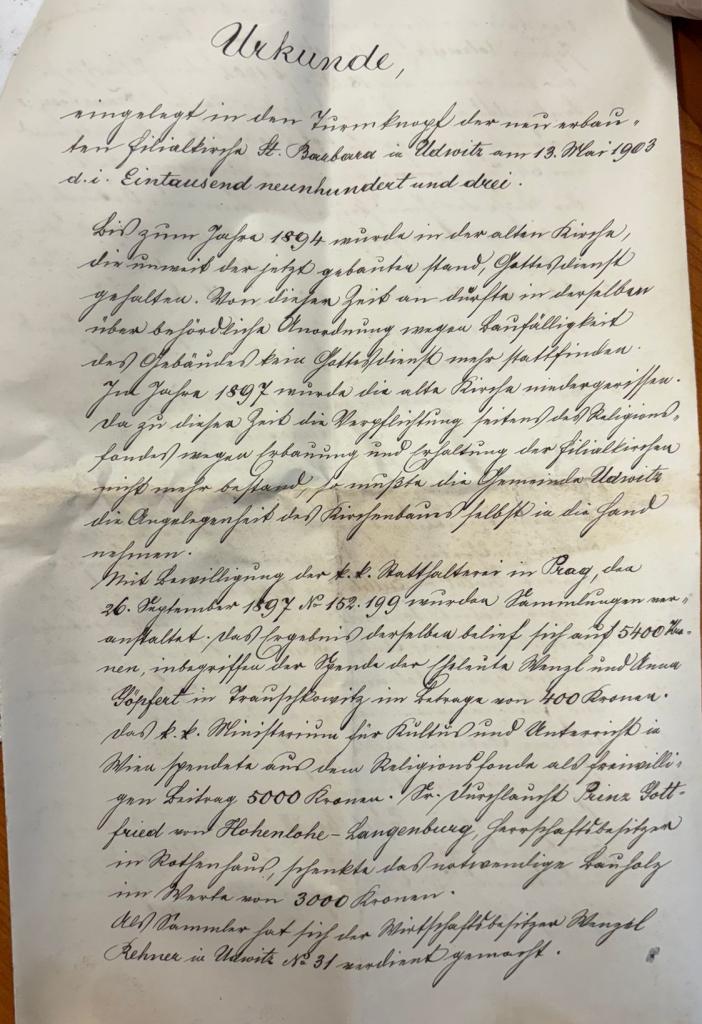 Urkunde,
eingelegt in den Turmknopf der neu erbau-
ten Filialkirche St. Barbara in Udwitz am 13. Mai 1903
d. i. Eintausend neunhundert und drei.
Bis zum Jahre 1894 wurde in der alten Kirche,
die unweit der jetzt gebauten stand, Gottesdienst
gehalten. Von dieser Zeit an durfte in derselben
über behördliche Anordnung wegen Baufälligkeit
des Gebäudes kein Gottesdienst mehr stattfinden.
Im Jahre 1897 wurde die alte Kirche niedergerissen.
Da zu dieser Zeit die Verpflichtung seitens des Religions-
fondes wegen Erbauung und Erhaltung der Filialkirchen
nicht mehr bestand, so mußte die Gemeinde Udwitz
die Angelegenheit des Kirchenbaues selbst in die Hand
nehmen.
Mit Bewilligung der k. k. Statthalterei in Prag, den
26. September 1897 No 152.199 wurden Sammlungen ver-
anstaltet. Das Ergebnis derselben belief sich auf 5400 Kro-
nen, inbegriffen der Spende der Eheleute Wenzl und Anna
Göpfert in Trauschkowitz im Betrage von 400 Kronen.
Das k. k. Ministerium für Kultus und Unterricht in
Wien spendete aus dem Religionsfonde als freiwilli-
gen Beitrag 5000 Kronen. Sr. Durchlaucht Prinz Gott-
fried von Hohenlohe-Langenburg, Herrschaftsbesitzer
in Rothenhaus, schenkte das notwendige Bauholz
im Werte von 3000 Kronen.
Als Sammler hat sich der Wirtschaftsbesitzer Wenzel
Rehner in Udwitz No 31 verdient gemacht.